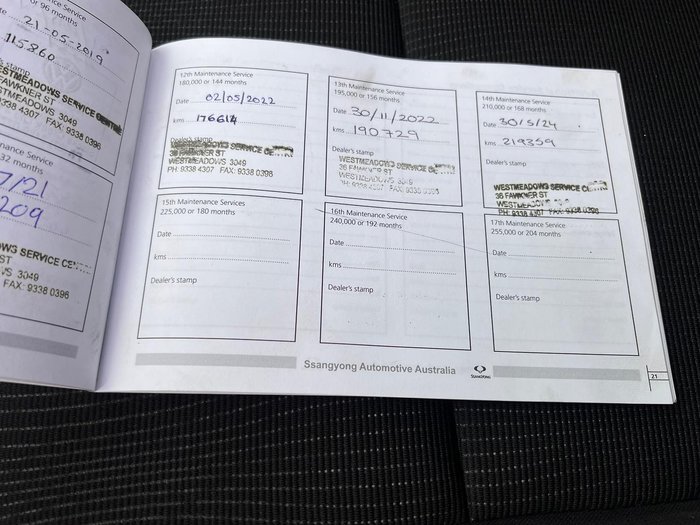 or 96 months
21-05-2019
115860
WESTMEADOWS SERVICE
FAWKNER ST
WESTMEADOWS 3049
9338 4307 FAX: 9338 0396
7/21
209
SERVICE
ST
3049
FAX: 9338 0396
12th Maintenance Service
180,000 or 144 months
Date 02/05/2022
kms 176614
Dealer's stamp
WESTMEADOWS SERVICE
36 FAWKNER ST
WESTMEADOWS 3049
PH: 9338 4307 FAX: 9338 0396
13th Maintenance Service
195,000 or 156 months
Date 30/11/2022
kms 190729
Dealer's stamp
WESTMEADOWS SERVICE
36 FAWKNER ST
WESTMEADOWS 3049
PH: 9338 4307 FAX: 9338 0396
14th Maintenance Service
210,000 or 168 months
Date 30/5/24
kms 219359
Dealer's stamp
WESTMEADOWS SERVICE
36 FAWKNER ST
PH: 9338 4307 FAX: 9338 0396
15th Maintenance Service
225,000 or 180 months
Date
kms
Dealer's stamp
16th Maintenance Service
240,000 or 192 months
Date
kms
Dealer's stamp
17th Maintenance Service
255,000 or 204 months
Date
kms
Dealer's stamp
Ssangyong Automotive Australia
SSANGYONG
21